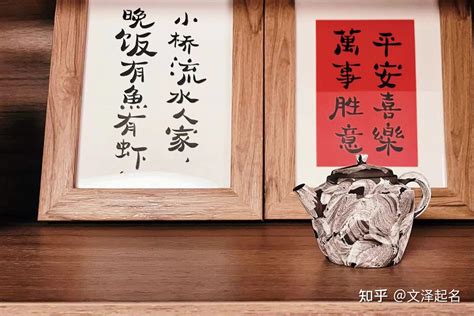 小桥流水人家，
晚饭有魚有虾，
平安喜樂
萬事胜意
知乎 @文泽起名